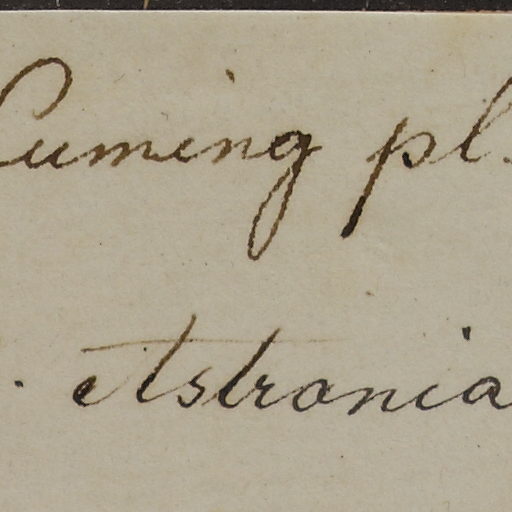 Cuming pl.
. Astronia